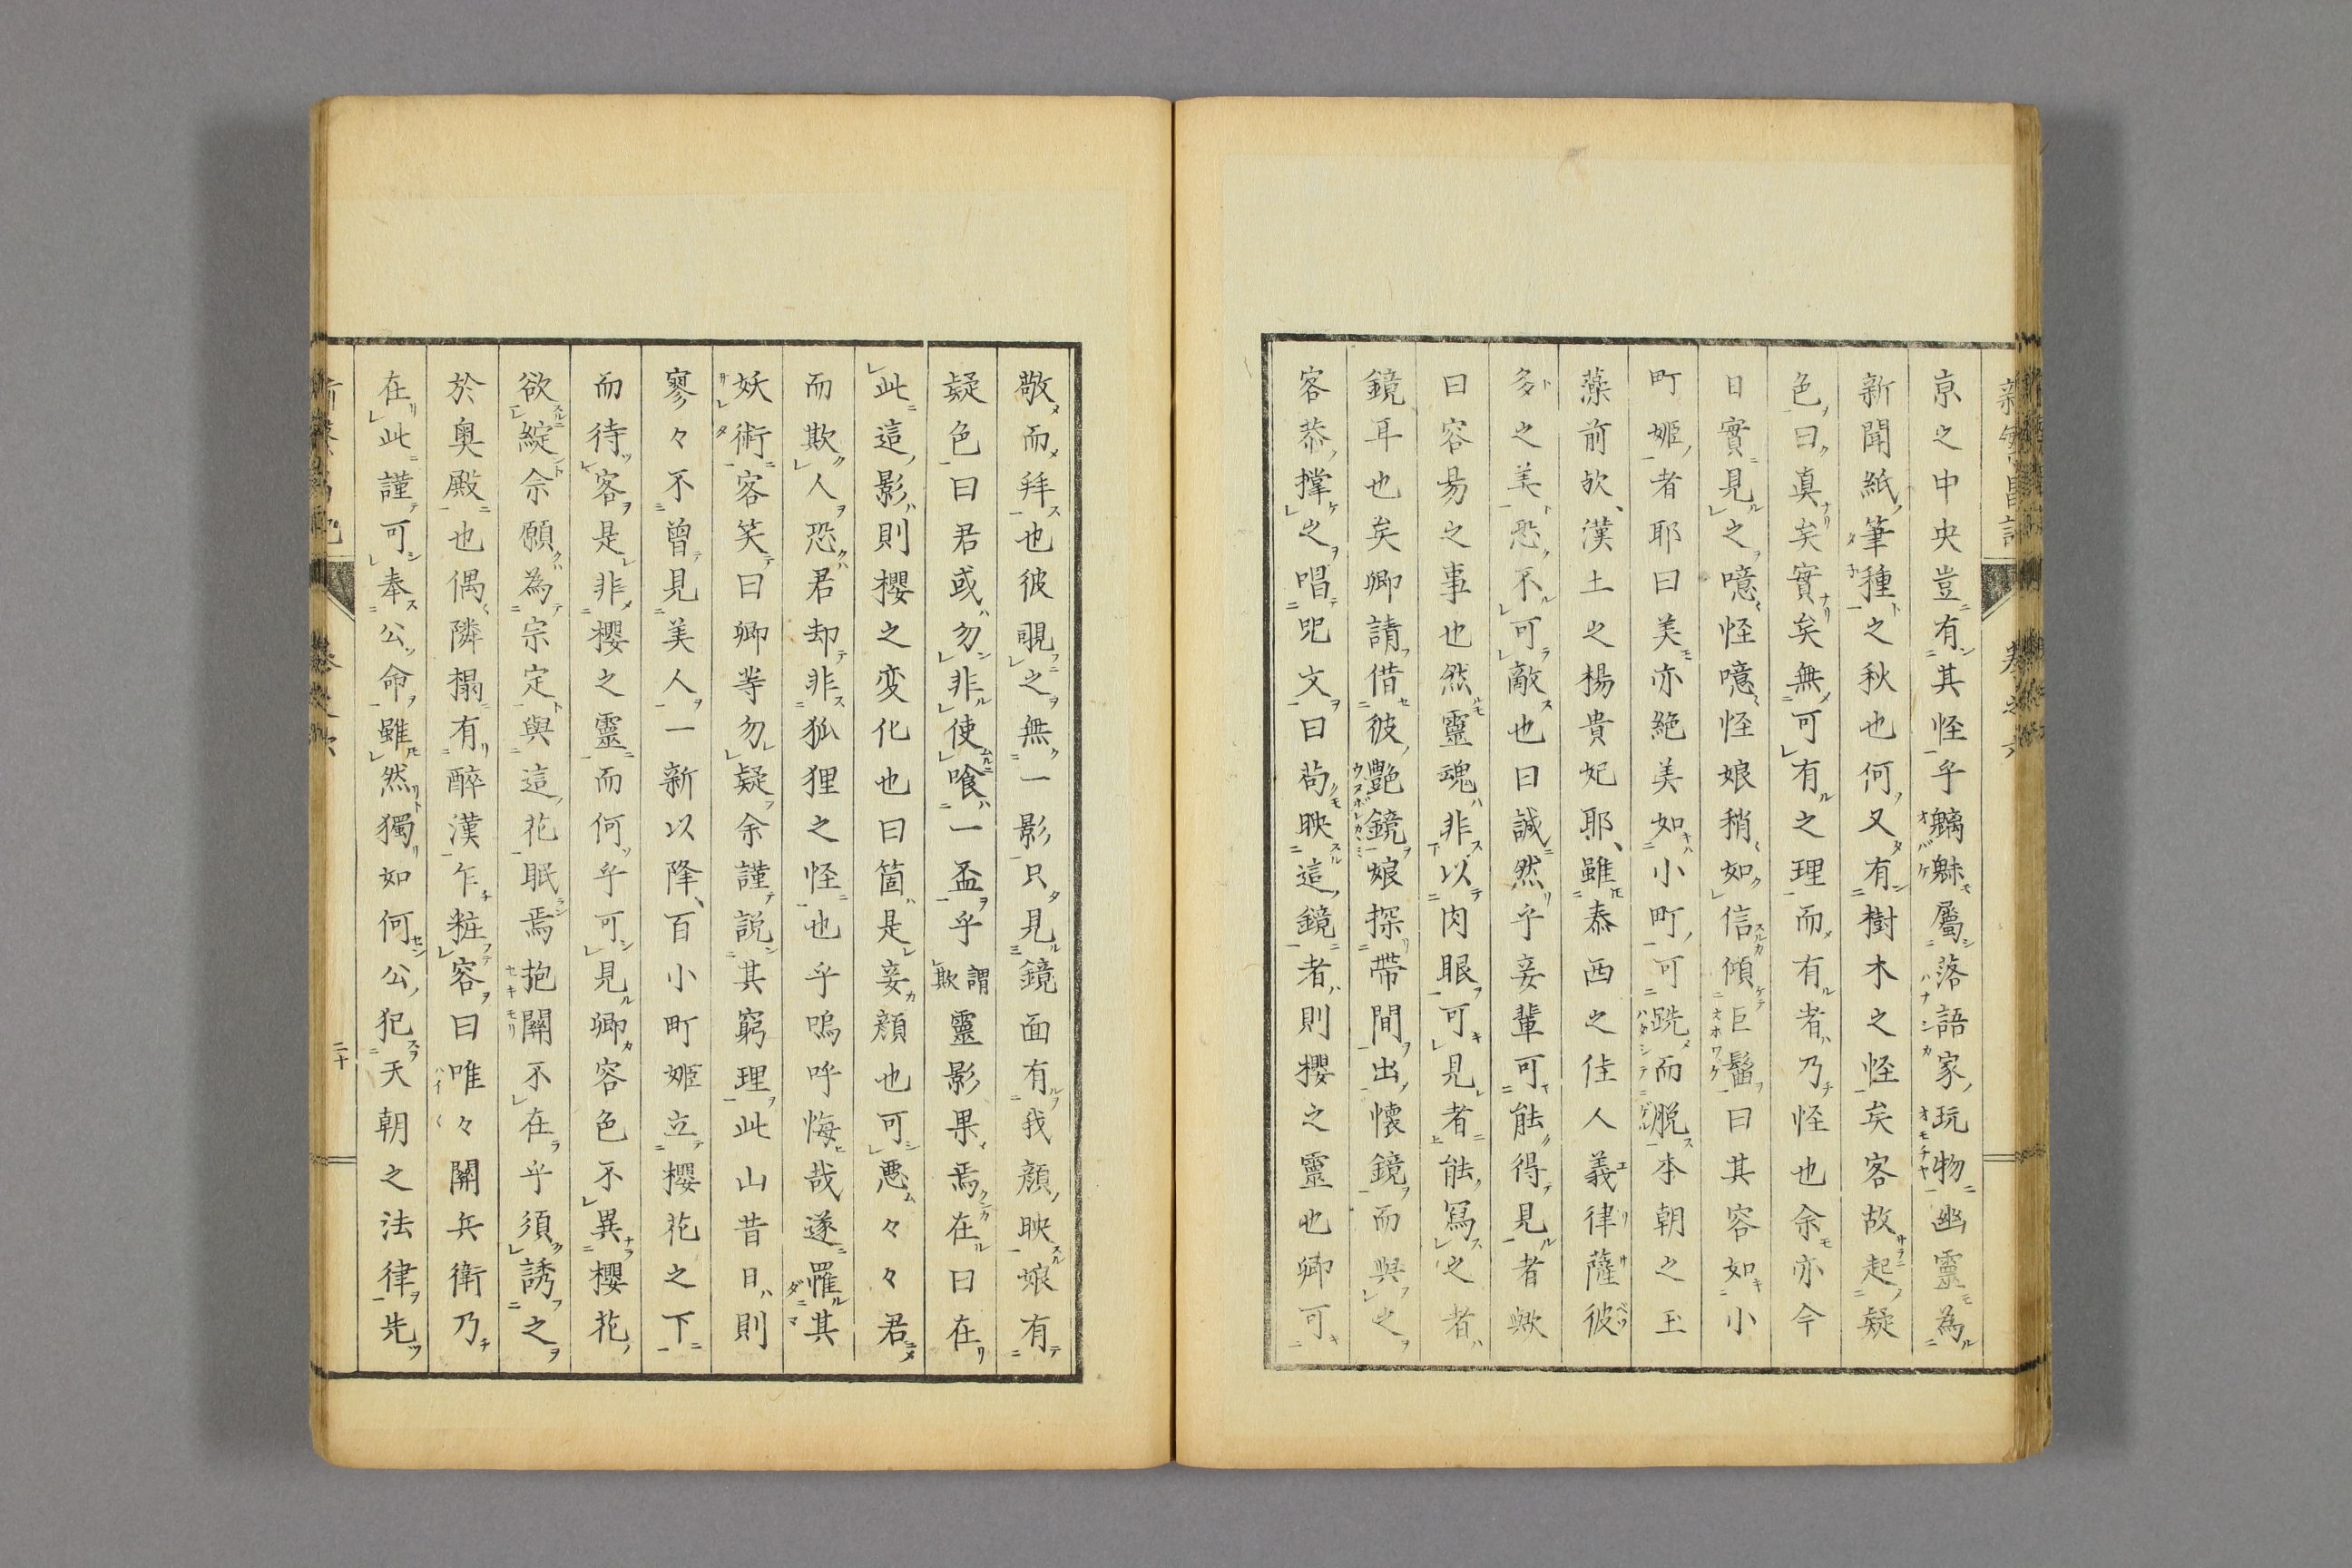 京之中央豈有其怪乎魑魅屬落語家玩物幽靈為
新聞紙筆種之秋也何又有樹木之怪矣客故起疑
色曰真矣實矣無可有之理而有者乃怪也余亦今
日實見之噫怪噫怪娘稍如信傾巨髷曰其容如小
町姬者耶曰美亦絕美如小町可跣而脱本朝之玉
藻前欤漢土之楊貴妃耶雖泰西之佳人義律薩彼
多之美恐不可敵也曰誠然乎妾輩可能得見者歟
曰容易之事也然靈魂非以肉眼可見者能寫之者
鏡耳也矣卿請借彼艷鏡娘探帶間出懷鏡而與之
客恭撑之唱呪文曰苟映這鏡者則櫻之靈也卿可
敬而拜也彼覗之無一影只見鏡面有我顔映娘有
疑色曰君或勿非使喰一盃乎謂欺靈影果焉在曰在
此這影則櫻之変化也曰箇是妾顔也可悪々々君
而欺人恐君却非狐狸之怪也乎嗚呼悔哉遂罹其
妖術客笑曰卿等勿疑余謹説其窮理此山昔日則
寥々不曾見美人一新以降百小町姬立櫻花之下
而待客是非櫻之靈而何乎可見卿容色不異櫻花
欲綻余願為宗定與這花眠焉抱關不在乎須誘之
於奥殿也偶隣榻有醉漢乍粧容曰唯々關兵衛乃
在此謹可奉公命雖然獨如何公犯天朝之法律先
二十